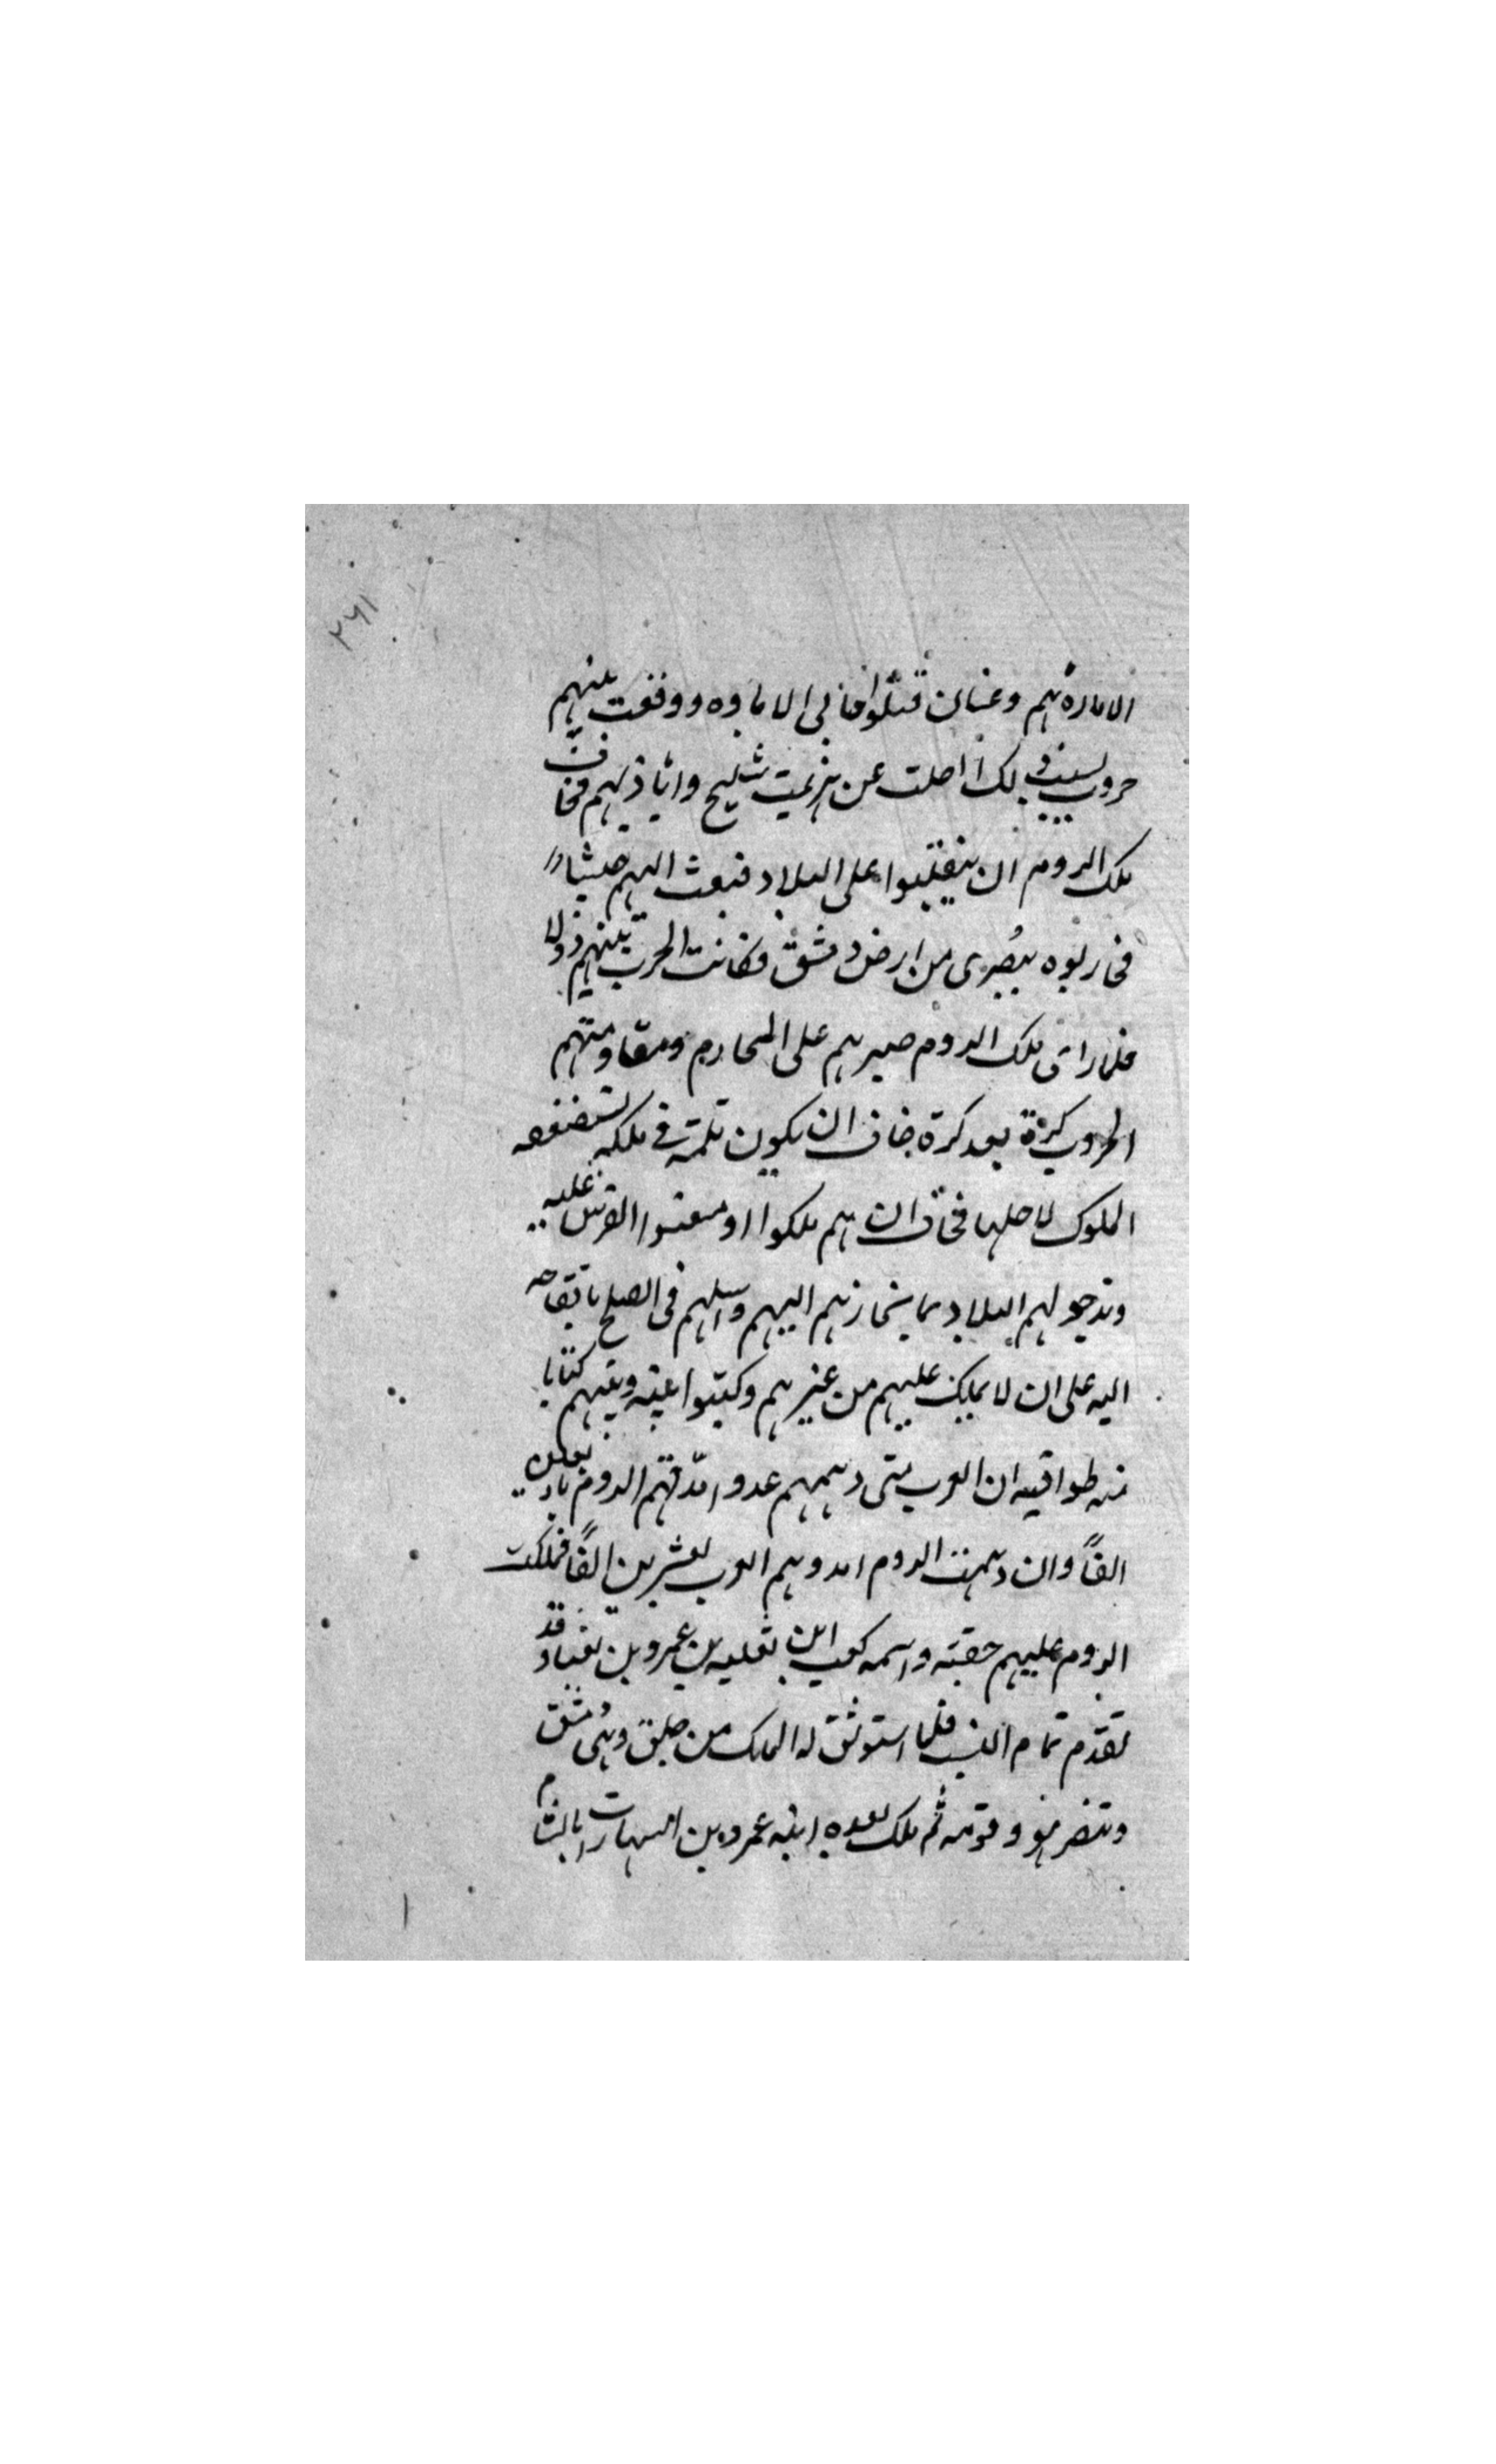 ٢٦١
الاماره لهم وغسان قتلوا فابى الا ماوه ووقعت بينهم
حروب لك اصلت عن هزيمت شليح واباذيهم فخافت
ملك الروم ان يتغلبوا على البلاد فبعث اليهم جيشا
فى ربوه ببُصرى من ارض دمشق فكانت الحرب بينهم دولا
فلما راى ملك الروم صبرهم على المحارم ومقاومتهم
الحروب كرة بعد كرة خاف ان يكون ثلمة في ملكه
الملوك لاجلها فخاف ان هم ملكوا او الفرس عليه
لهم البلاد بما ينحازهم اليهم وسالهم فى الصلح
اليه على ان لا يملك عليهم من غيرهم وكتبوا بينه وبينهم كتابا
ان العرب متى دهمهم عدو امدتهم الروم باربعين
الفاً وان دهمت الروم امدوهم العرب بعشرين الفاً فملكت
الروم عليهم حقبته واسمه كعب ابن ثعلبه بن عمرو بن قد
تقدم تمام النسب فلما استوثق له الملك من جلق وهى دمشق
وتنصر هو وقومه ثم ملك بعده ابنه عمرو بن بالشام